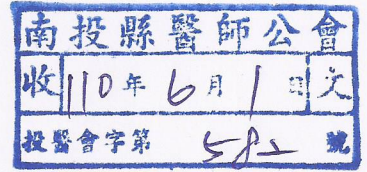 南投縣醫師公會
收110年6月1日文
投醫會字第582號